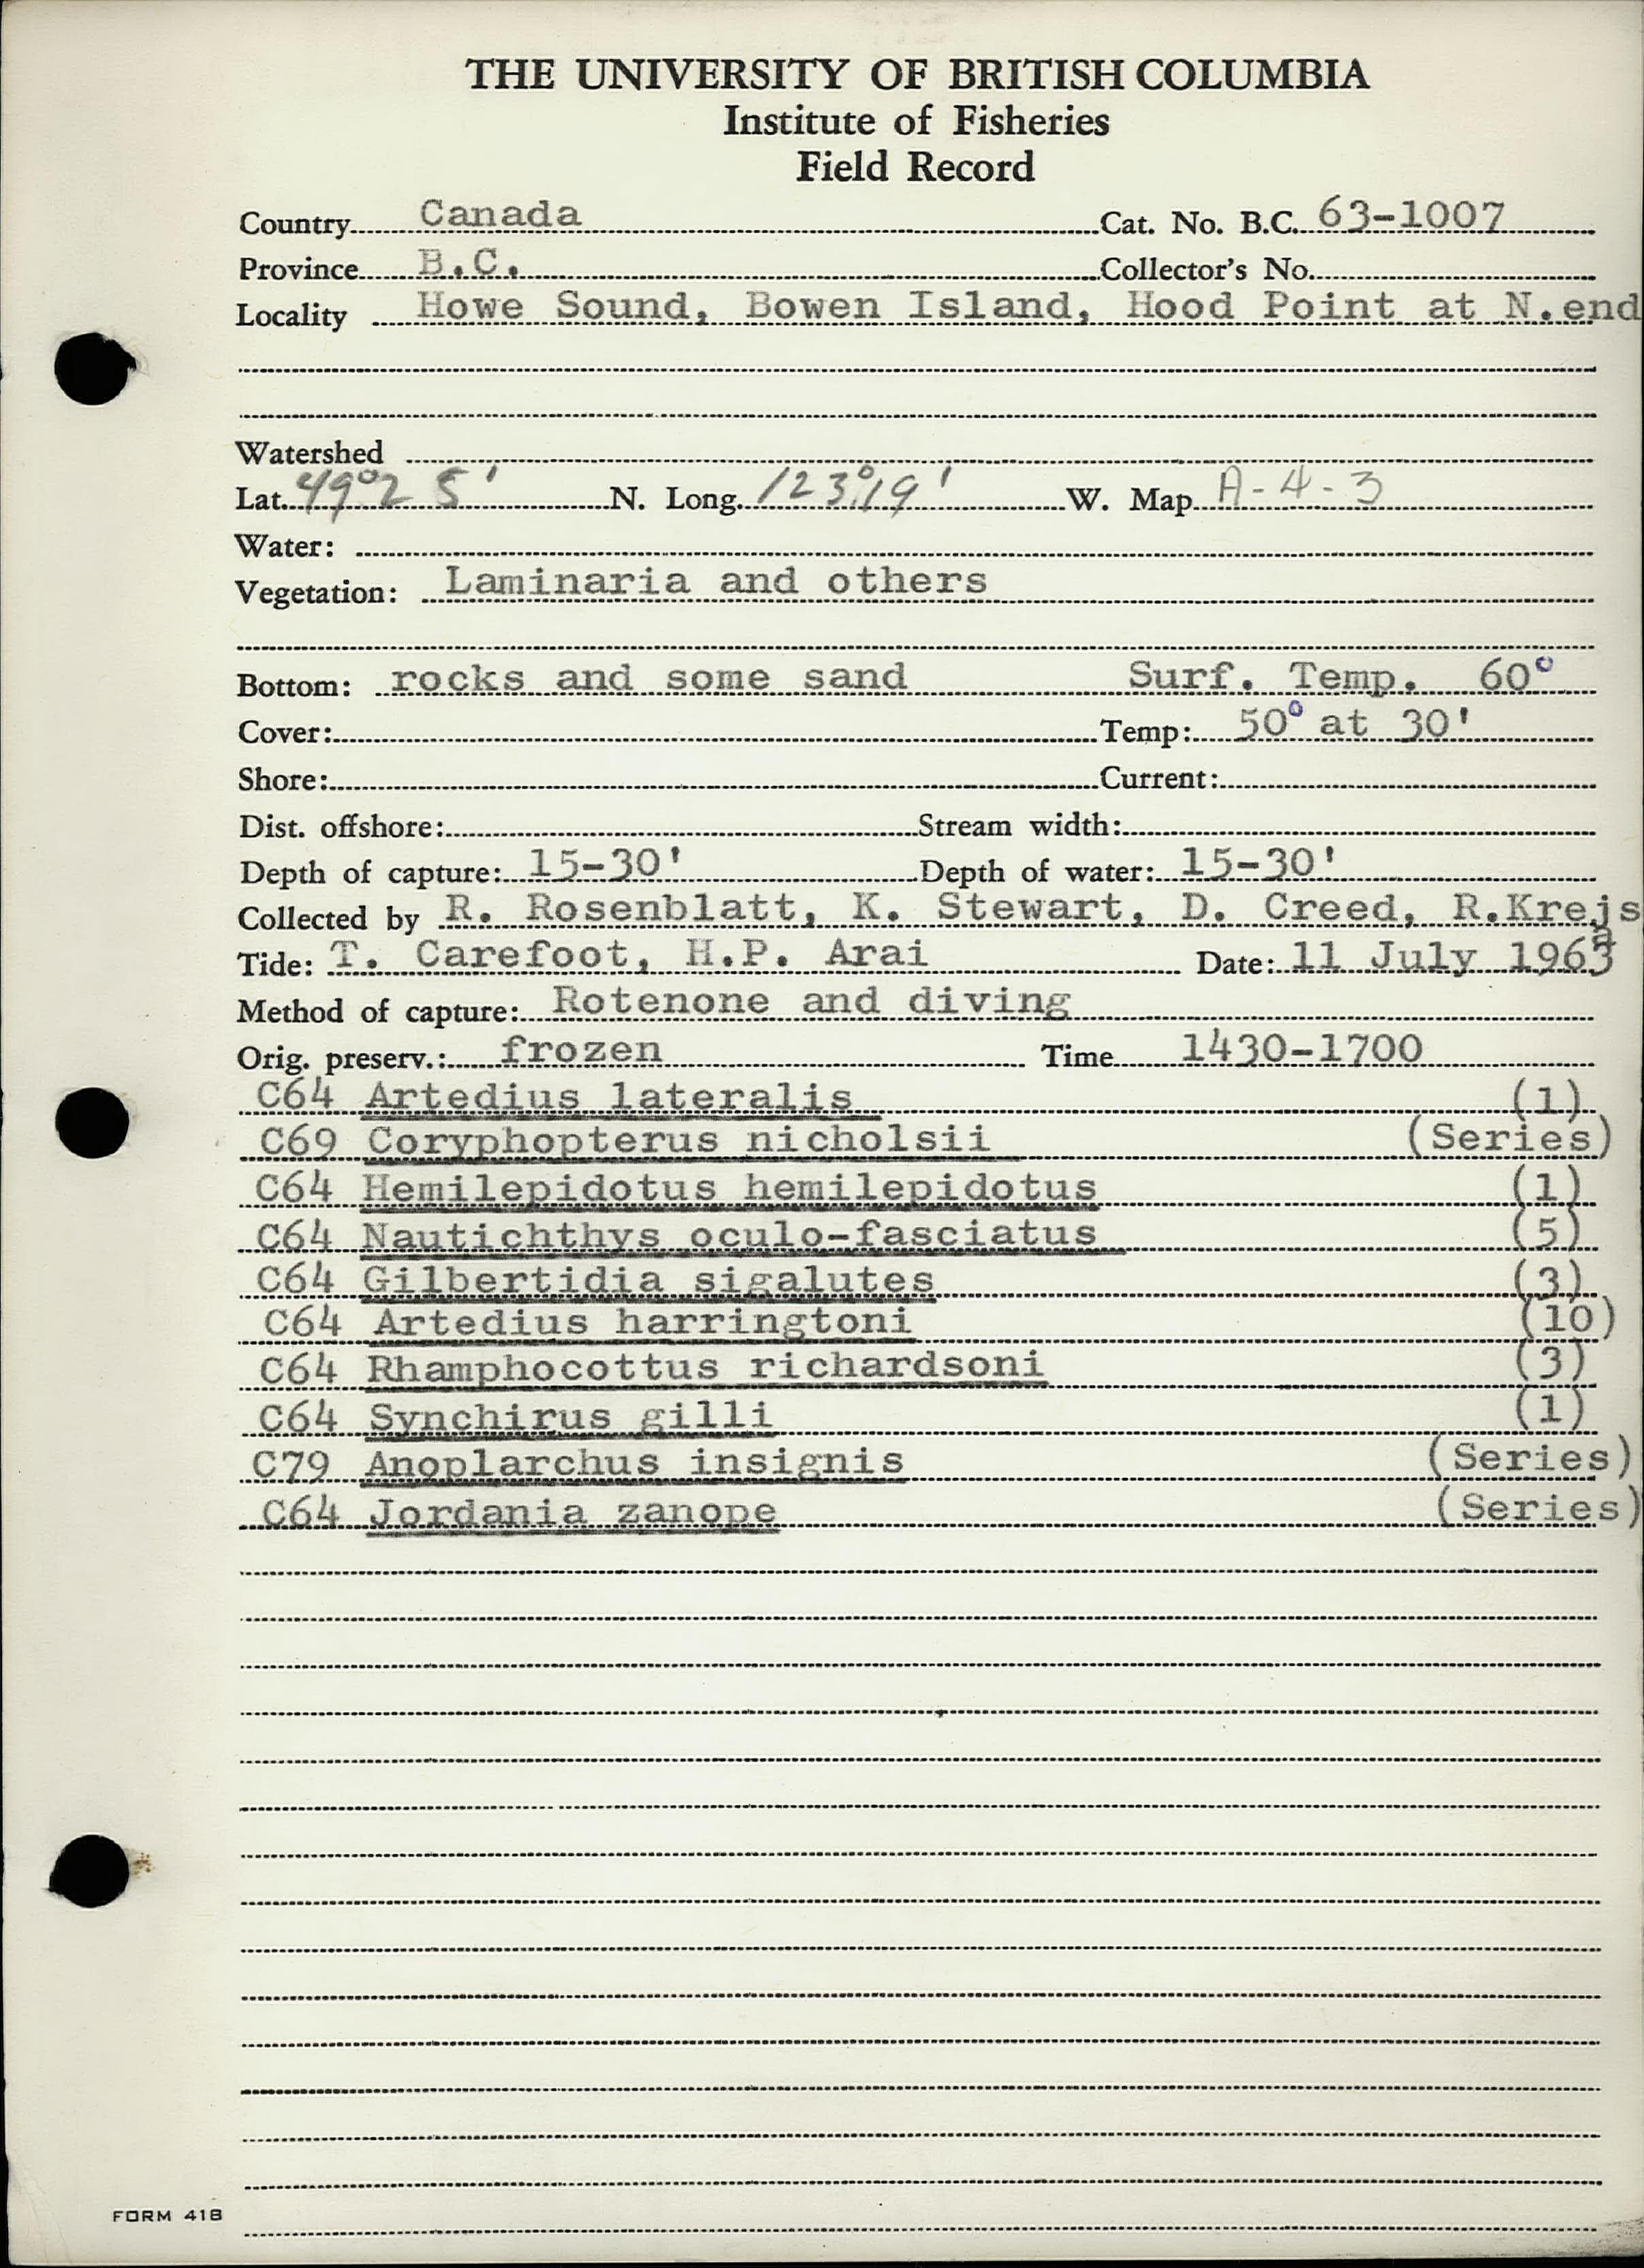 THE UNIVERSITY OF BRITISH COLUMBIA
Institute of Fisheries
Field Record
Country Canada Cat. No. B.C. 63-1007
Province B.C. Collector's No.
Locality Howe Sound, Bowen Island, Hood Point at N.end
Watershed
Lat. 49°25' N. Long. 123°19' W. Map A-4-3
Water:
Vegetation: Laminaria and others
Bottom: rocks and some sand Surf. Temp. 60°
Cover: Temp: 50° at 30'
Shore: Current:
Dist. offshore: Stream width:
Depth of capture: 15-30' Depth of water: 15-30'
Collected by R. Rosenblatt, K. Stewart, D. Creed, R.Krejs
Tide: T. Carefoot, H.P. Arai Date: 11 July 1963
Method of capture: Rotenone and diving
Orig. preserv.: frozen Time 1430-1700
C64 Artedius lateralis (1)
C69 Coryphopterus nicholsii (Series)
C64 Hemilepidotus hemilepidotus (1)
C64 Nautichthys oculo-fasciatus (5)
C64 Gilbertidia sigalutes (3)
C64 Artedius harringtoni (10)
C64 Rhamphocottus richardsoni (3)
C64 Synchirus gilli (1)
C79 Anoplarchus insignis (Series)
C64 Jordania zanope (Series)
FORM 41B